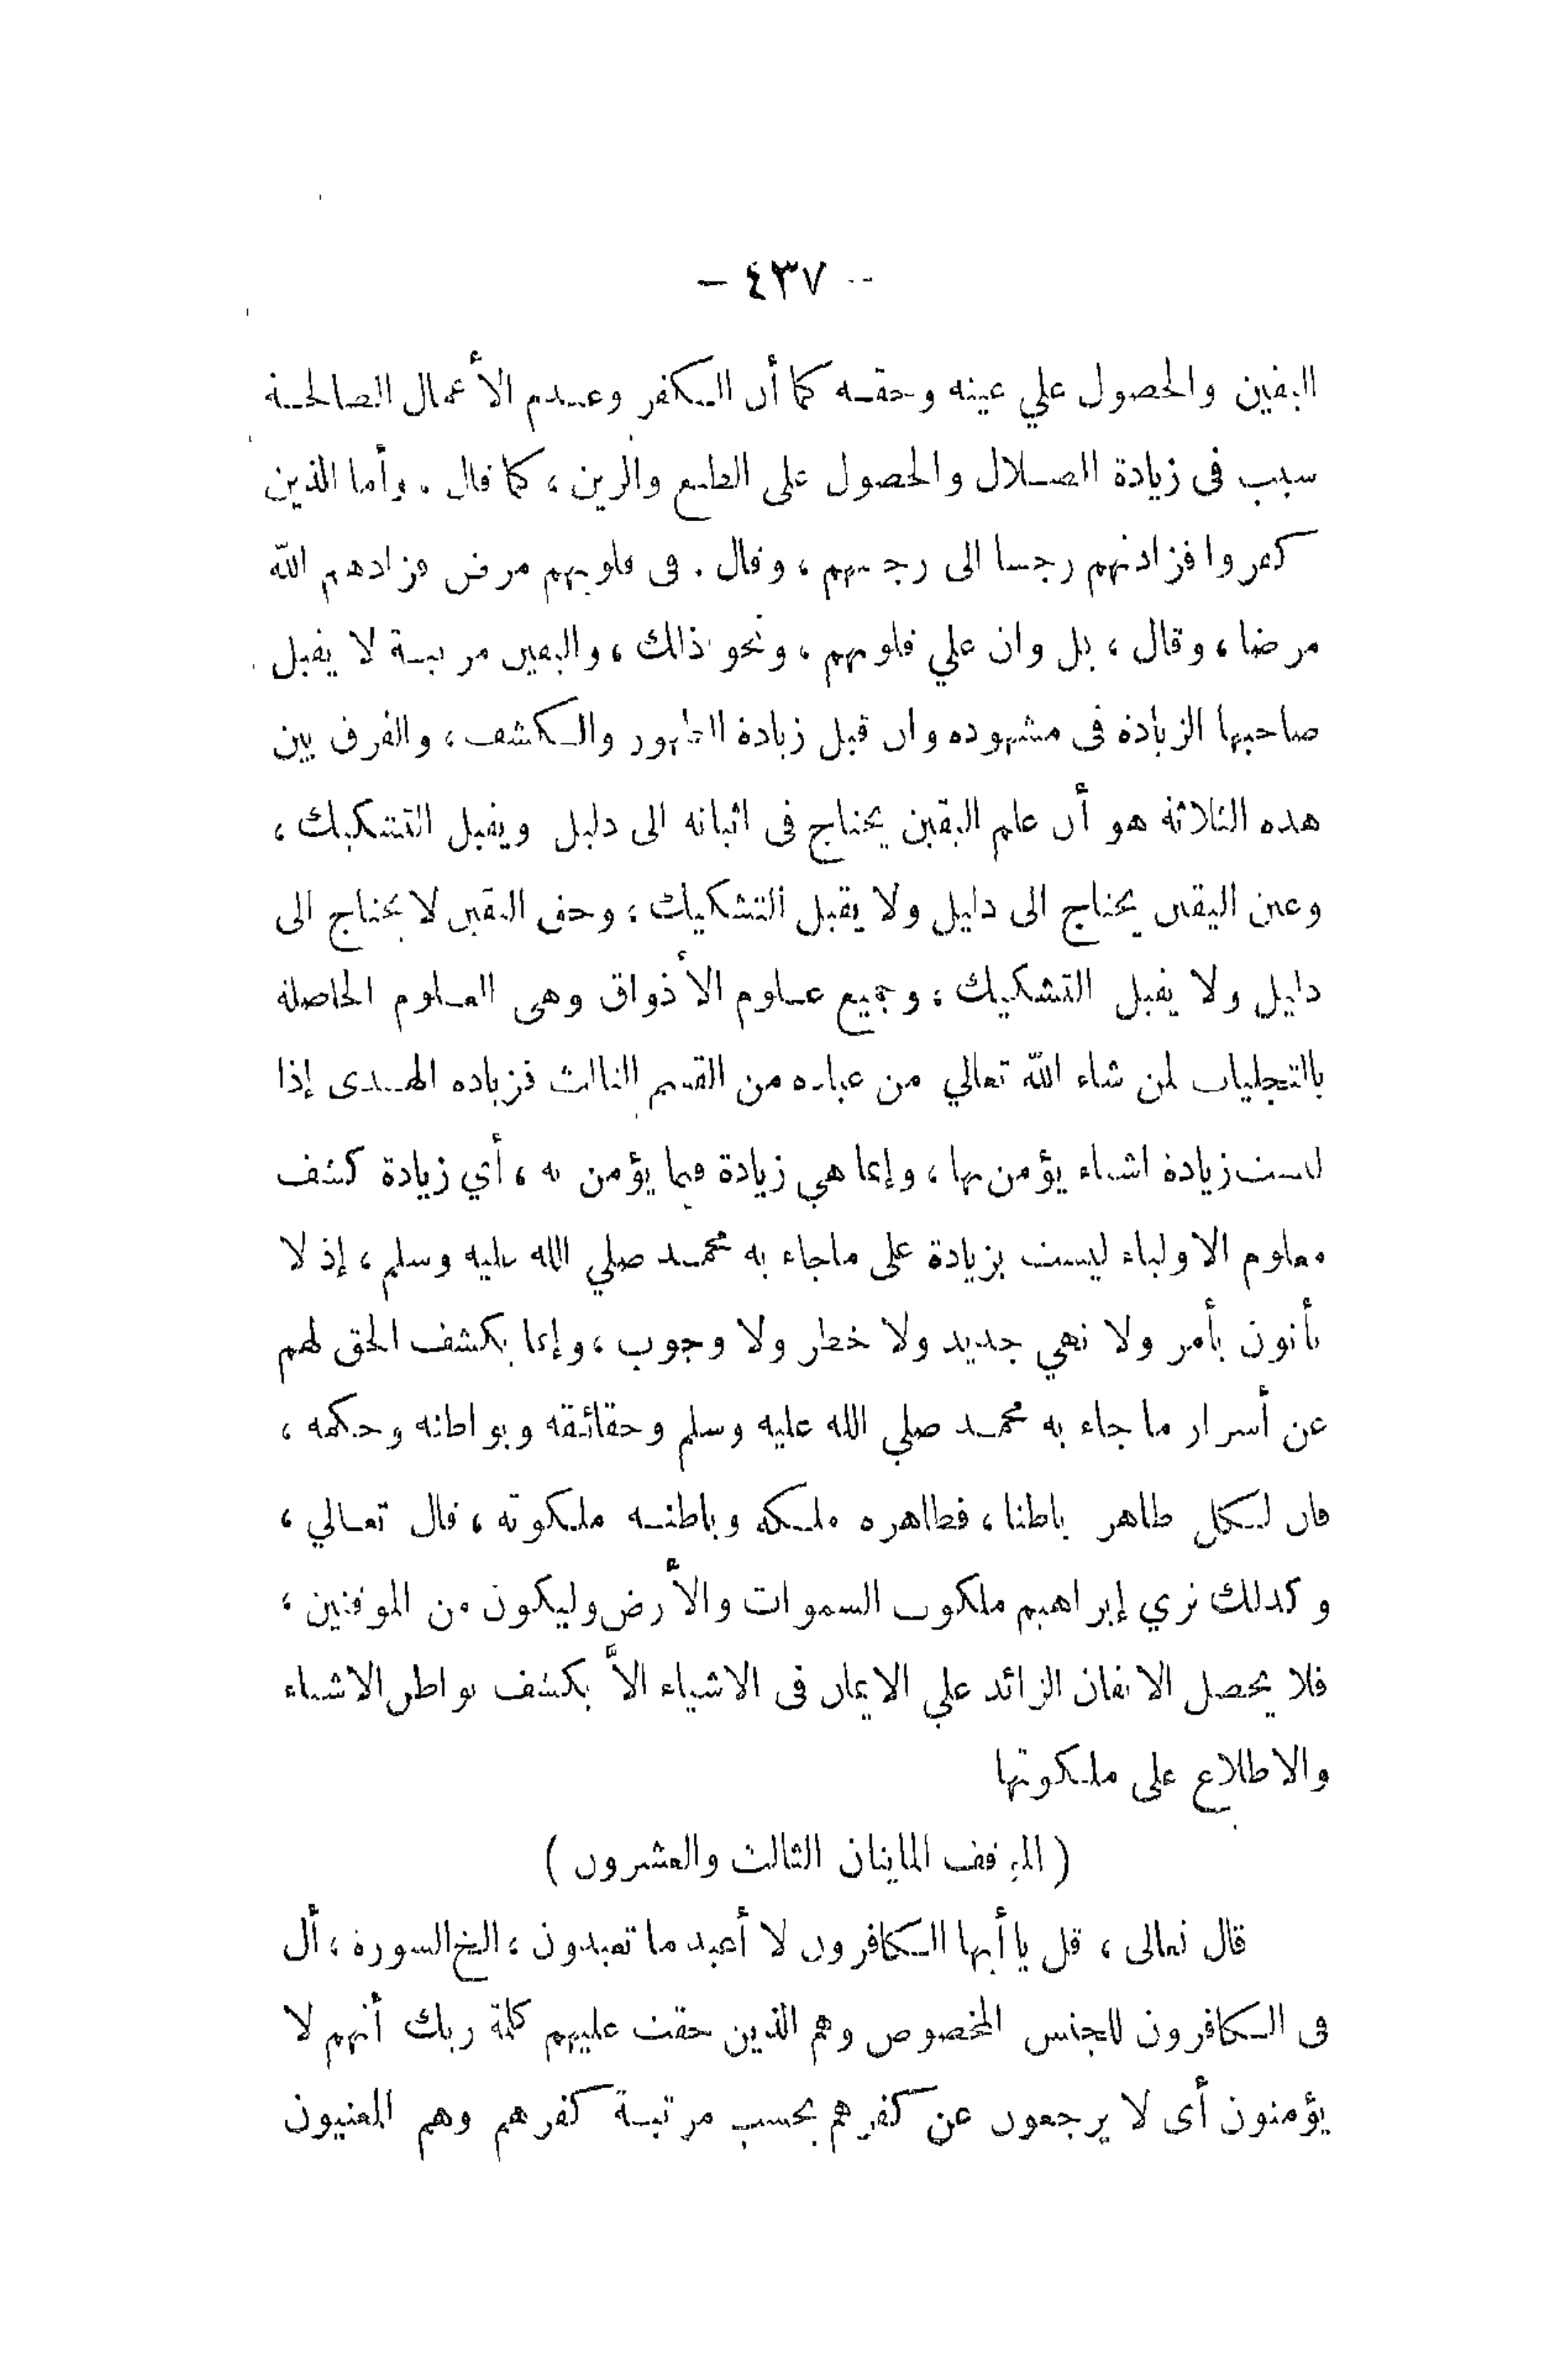 - ٤٣٧ -
اليقين والحصول علي عينه وحقه كما أن الكفر وعدم الأعمال الصالحة
سبب فى زيادة الضلال والحصول على الطبع والرين ، كما قال . وأما الذين
كفروا فزادتهم رجسا الى رجسهم ، وقال . فى قلوبهم مرض فزادهم الله
مرضا ، وقال ، بل وان علي قلوبهم ، ونحو ذلك ، واليقين مرتبة لا يقبل
صاحبها الزيادة فى مشهوده وان قبل زيادة الظهور والكشف ، والفرق بين
هذه الثلاثة هو أن علم اليقين يحتاج فى اثباته الى دليل ويقبل التشكيك ،
وعين اليقين يحتاج الى دليل ولا يقبل التشكيك ، وحق اليقين لا يحتاج الى
دليل ولا يقبل التشكيك ، وجميع علوم الأذواق وهى العلوم الحاصلة
بالتجليات لمن شاء الله تعالي من عباده من القسم الثالث فزياده الهدى إذا
ليست زيادة اشياء يؤمن بها ، وإنما هي زيادة فيما يؤمن به ، أي زيادة كشف
فعلوم الاولياء ليست بزيادة على ماجاء به محمد صلي الله عليه وسلم ، إذ لا
يأتون بأمر ولا نهي جديد ولا خطر ولا وجوب ، وإنما يكشف الحق لهم
عن أسرار ما جاء به محمد صلي الله عليه وسلم وحقائقه وبواطنه وحكمه ،
فان لكل ظاهر باطنا ، فظاهره ملكه وباطنه ملكوته ، قال تعالي ،
وكذلك نري إبراهيم ملكوت السموات والأرض وليكون من الموقنين ،
فلا يحصل الايقان الزائد علي الايمان فى الاشياء الاّ بكشف بواطن الاشياء
والاطلاع على ملكوتها
( الموقف المايتان الثالث والعشرون )
قال تعالى ، قل يا أيها الكافرون لا أعبد ما تعبدون ، الخ السورة ، أل
فى الكافرون للجنس المخصوص وهم الذين حقت عليهم كلمة ربك أنهم لا
يؤمنون أى لا يرجعون عن كفرهم بحسب مرتبة كفرهم وهم المعنيون